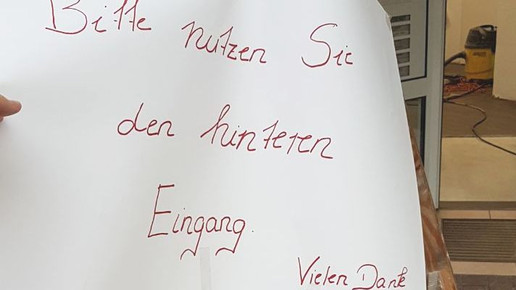 Bitte nutzen Sie
den hinteren
Eingang.
Vielen Dank